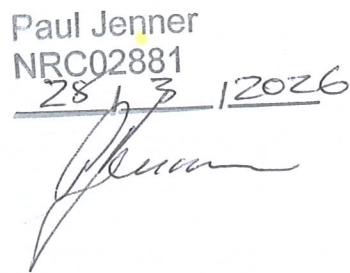 Paul Jenner
NRC02881
28 / 3 / 2026